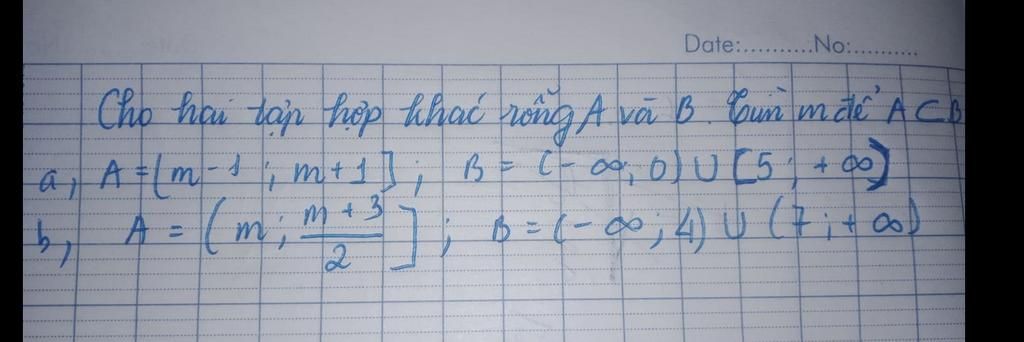 Date:..........No:..........
Cho hai tập hợp khác rỗng A và B. Tìm m để A ⊂ B
a, A = [m - 1 ; m + 1] ; B = (- ∞; 0) ∪ [5 ; + ∞)
b, A = (m ; \frac{m + 3}{2}] ; B = (- ∞ ; 4) ∪ (7 ; + ∞)